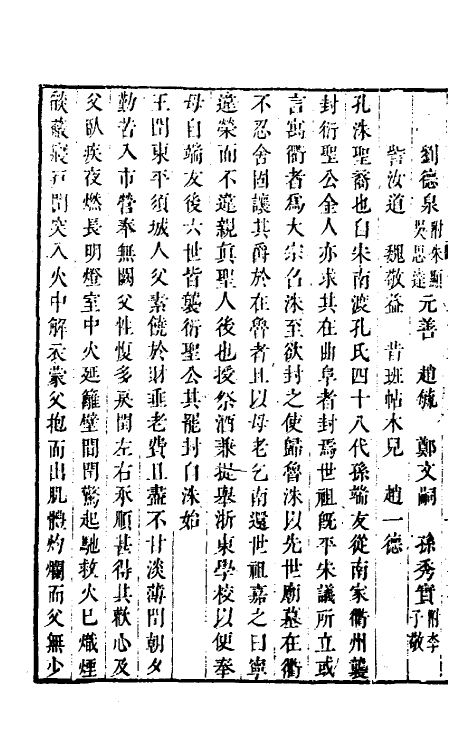 劉德泉 附朱顯 吳思達 元善 趙毓 鄭文嗣 孫秀實 附李子敬
訾汝道 魏敬益 昔班帖木兒 趙一德
孔洙聖裔也自宋南渡孔氏四十八代孫端友從南家衢州襲
封衍聖公金人亦求其在曲阜者封焉世祖旣平宋議所立或
言寓衢者為大宗召洙至欲封之使歸魯洙以先世廟墓在衢
不忍舍固讓其爵於在魯者且以母老乞南還世祖嘉之曰寧
違榮而不違親真聖人後也授祭酒兼提舉浙東學校以便奉
母自端友後六世皆襲衍聖公其罷封自洙始
王閏東平須城人父素饒於財垂老費且盡不甘淡薄閏朝夕
勤苦入市營奉無闕父性愎多戾閏左右承順甚得其歡心及
父臥疾夜燃長明燈室中火延籬壁間閏驚起馳救火已熾煙
燄蔽寢戸閏突入火中解衣蒙父抱而出肌體灼爛而父無少